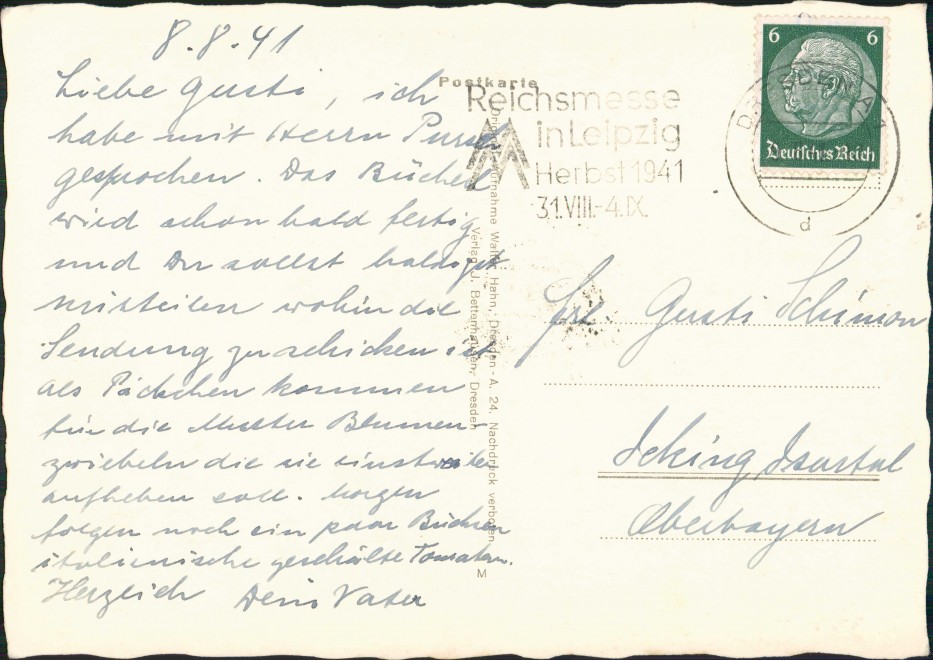 8.8.41
Liebe Gusti, ich
habe mit Herrn
gesprochen. Das Bücherl
wird schon bald fertig
und Du sollst baldigst
mitteilen wohin die
Sendung zu schicken ist
als Päckchen kommen
für die Mutter Blumen-
zwiebeln die sie einstweilen
aufheben soll. Morgen
folgen noch ein paar Büchsen
italienische geschälte Tomaten.
Herzlich Dein Vater
Postkarte
Reichsmesse
in Leipzig
Herbst 1941
31.VIII.-4.IX.
DRESDEN A
d
6 6
Deutsches Reich
Original-Aufnahme Walter Hahn, Dresden - A. 24. Nachdruck verboten.
Verlag J. Bettenhausen, Dresden
M
Frl. Gusti Schimon
Icking Isartal
Oberbayern